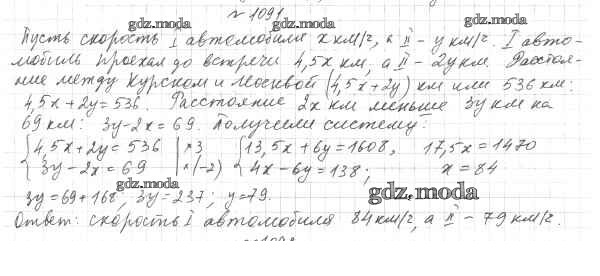 № 1091
gdz.moda gdz.moda
Пусть скорость I автомобиля x км/г, а II – y км/г. I авто-
мобиль проехал до встречи 4,5x км, а II – 2y км. Расстоя-
ние между Курском и Москвой (4,5x+2y) км или 536 км:
4,5x+2y=536. Расстояние 2x км меньше 3y км на
69 км: 3y-2x=69. Получаем систему:
{4,5x+2y=536 | ×3 {13,5x+6y=1608, 17,5x=1470
{3y-2x=69 | ×(-2) {4x-6y=-138; x=84
gdz.moda gdz.moda
3y=69+168; 3y=237; y=79.
Ответ: скорость I автомобиля 84 км/г, а II – 79 км/г.